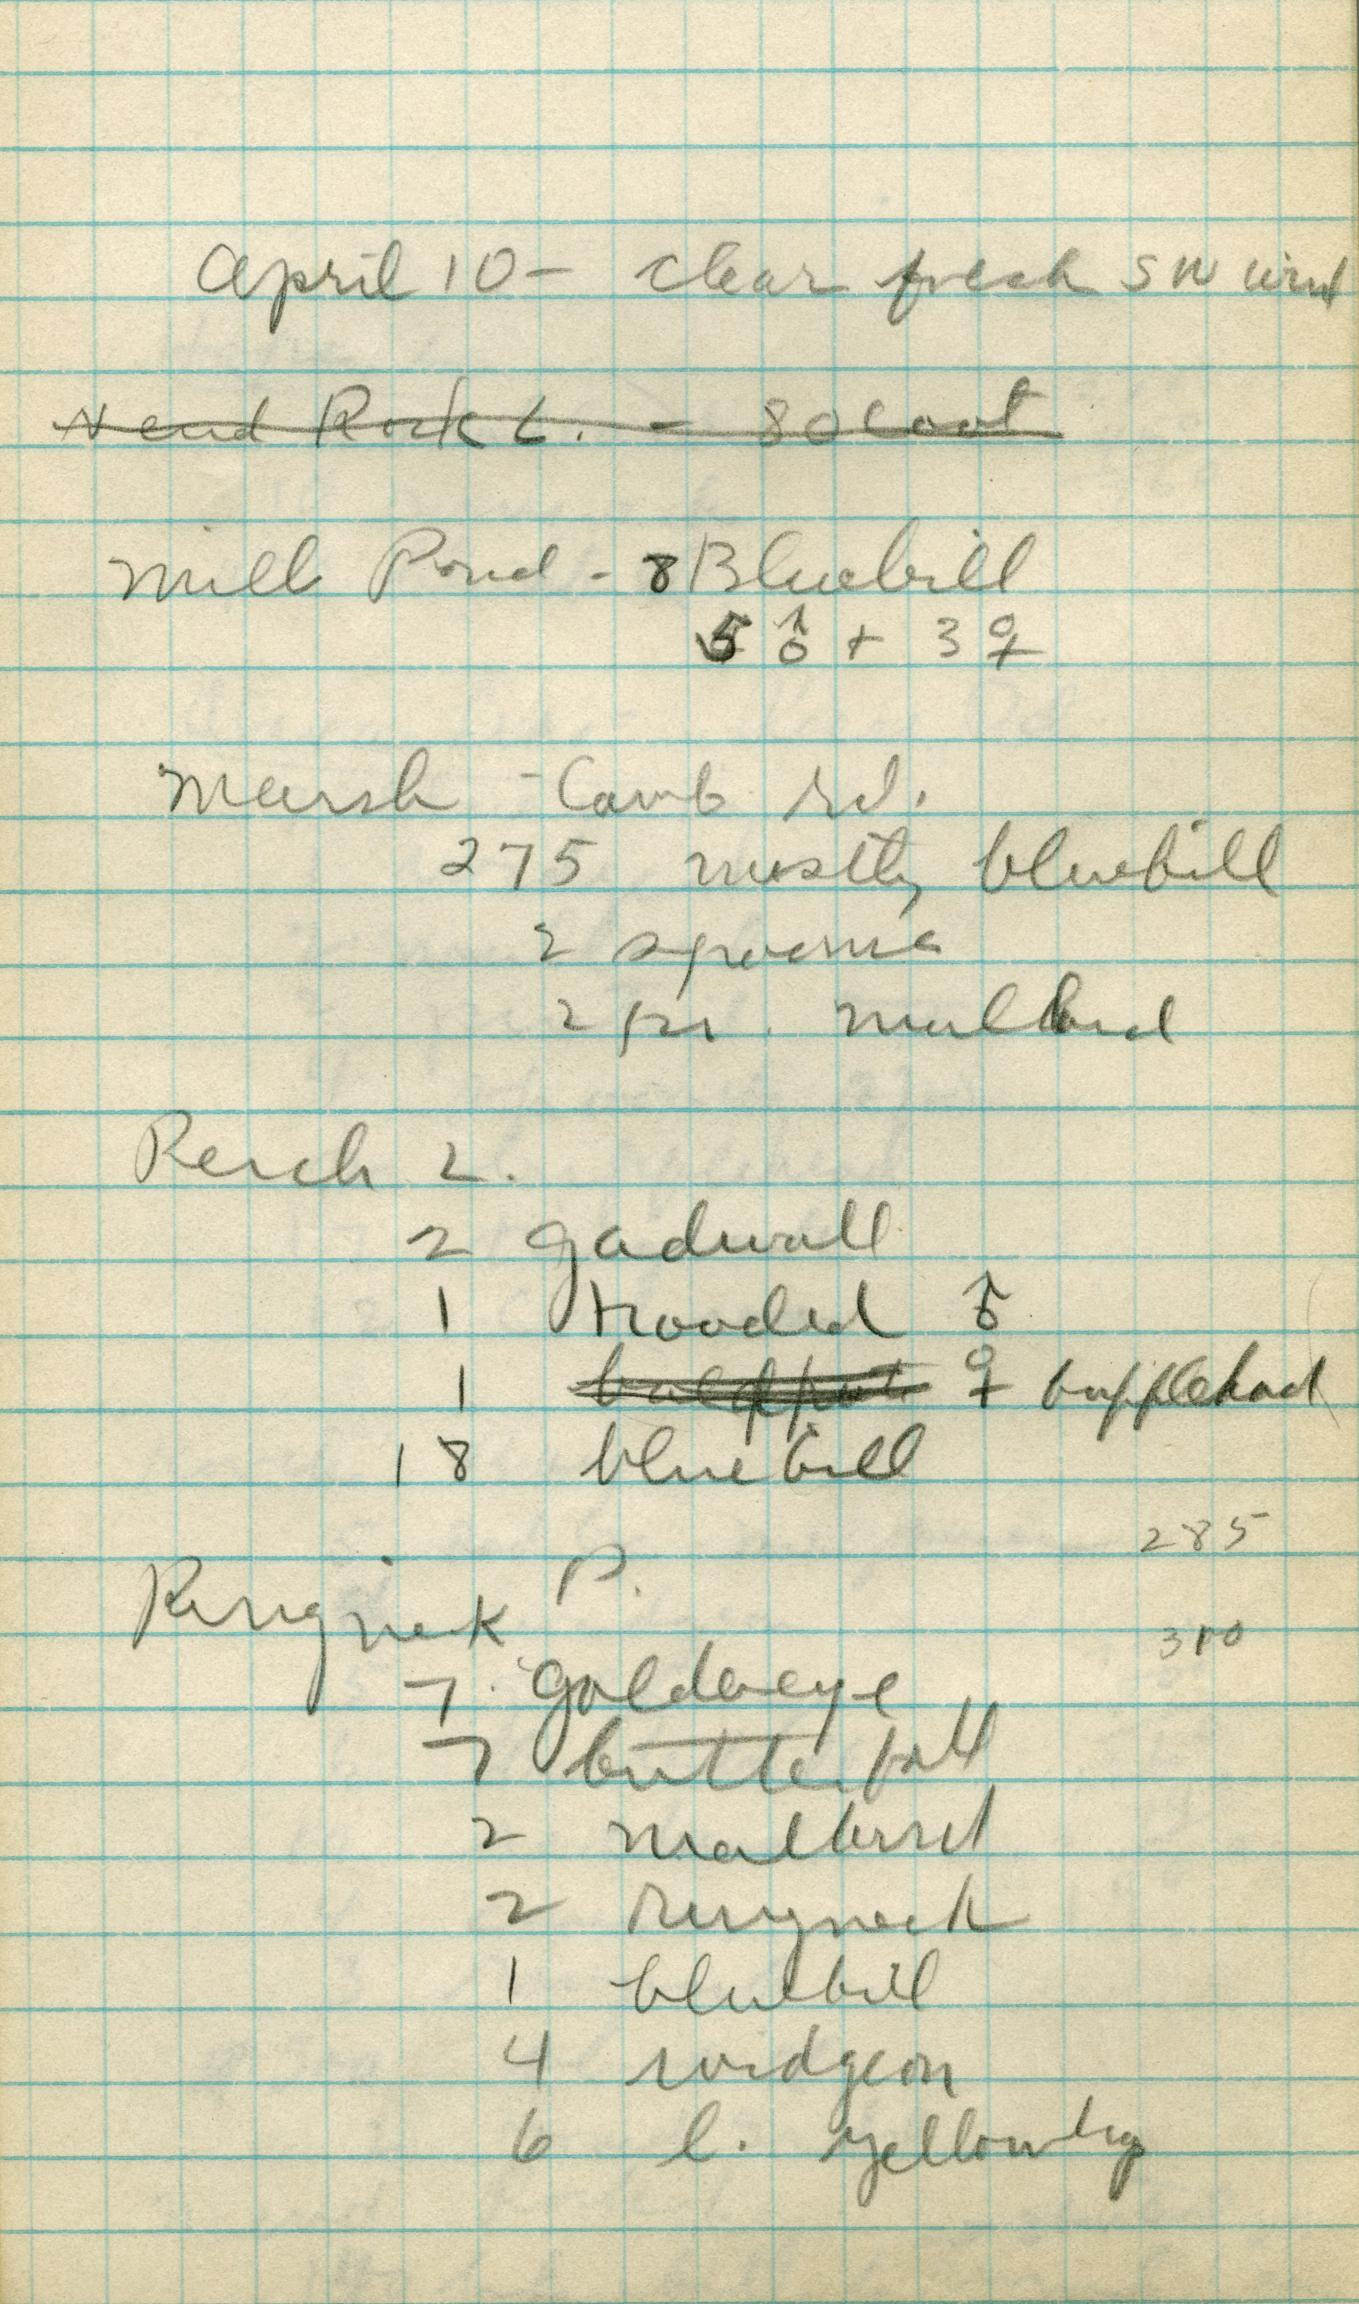 April 10 - clear fresh SW wind
N end Rock L. - 80 coot
Mill Pond - 8 Bluebill
5 ♂ + 3 ♀
Marsh - Camb rd.
275 mostly bluebill
2 spoonie
2 pr. mallard
Perch L.
2 gadwall
1 Hooded ♂
1 baldpate ♀ bufflehead
18 bluebill
285
Ringneck P.
310
7 goldeneye
7 butterball
2 mallard
2 ringneck
1 bluebill
4 widgeon
6 l. yellowleg